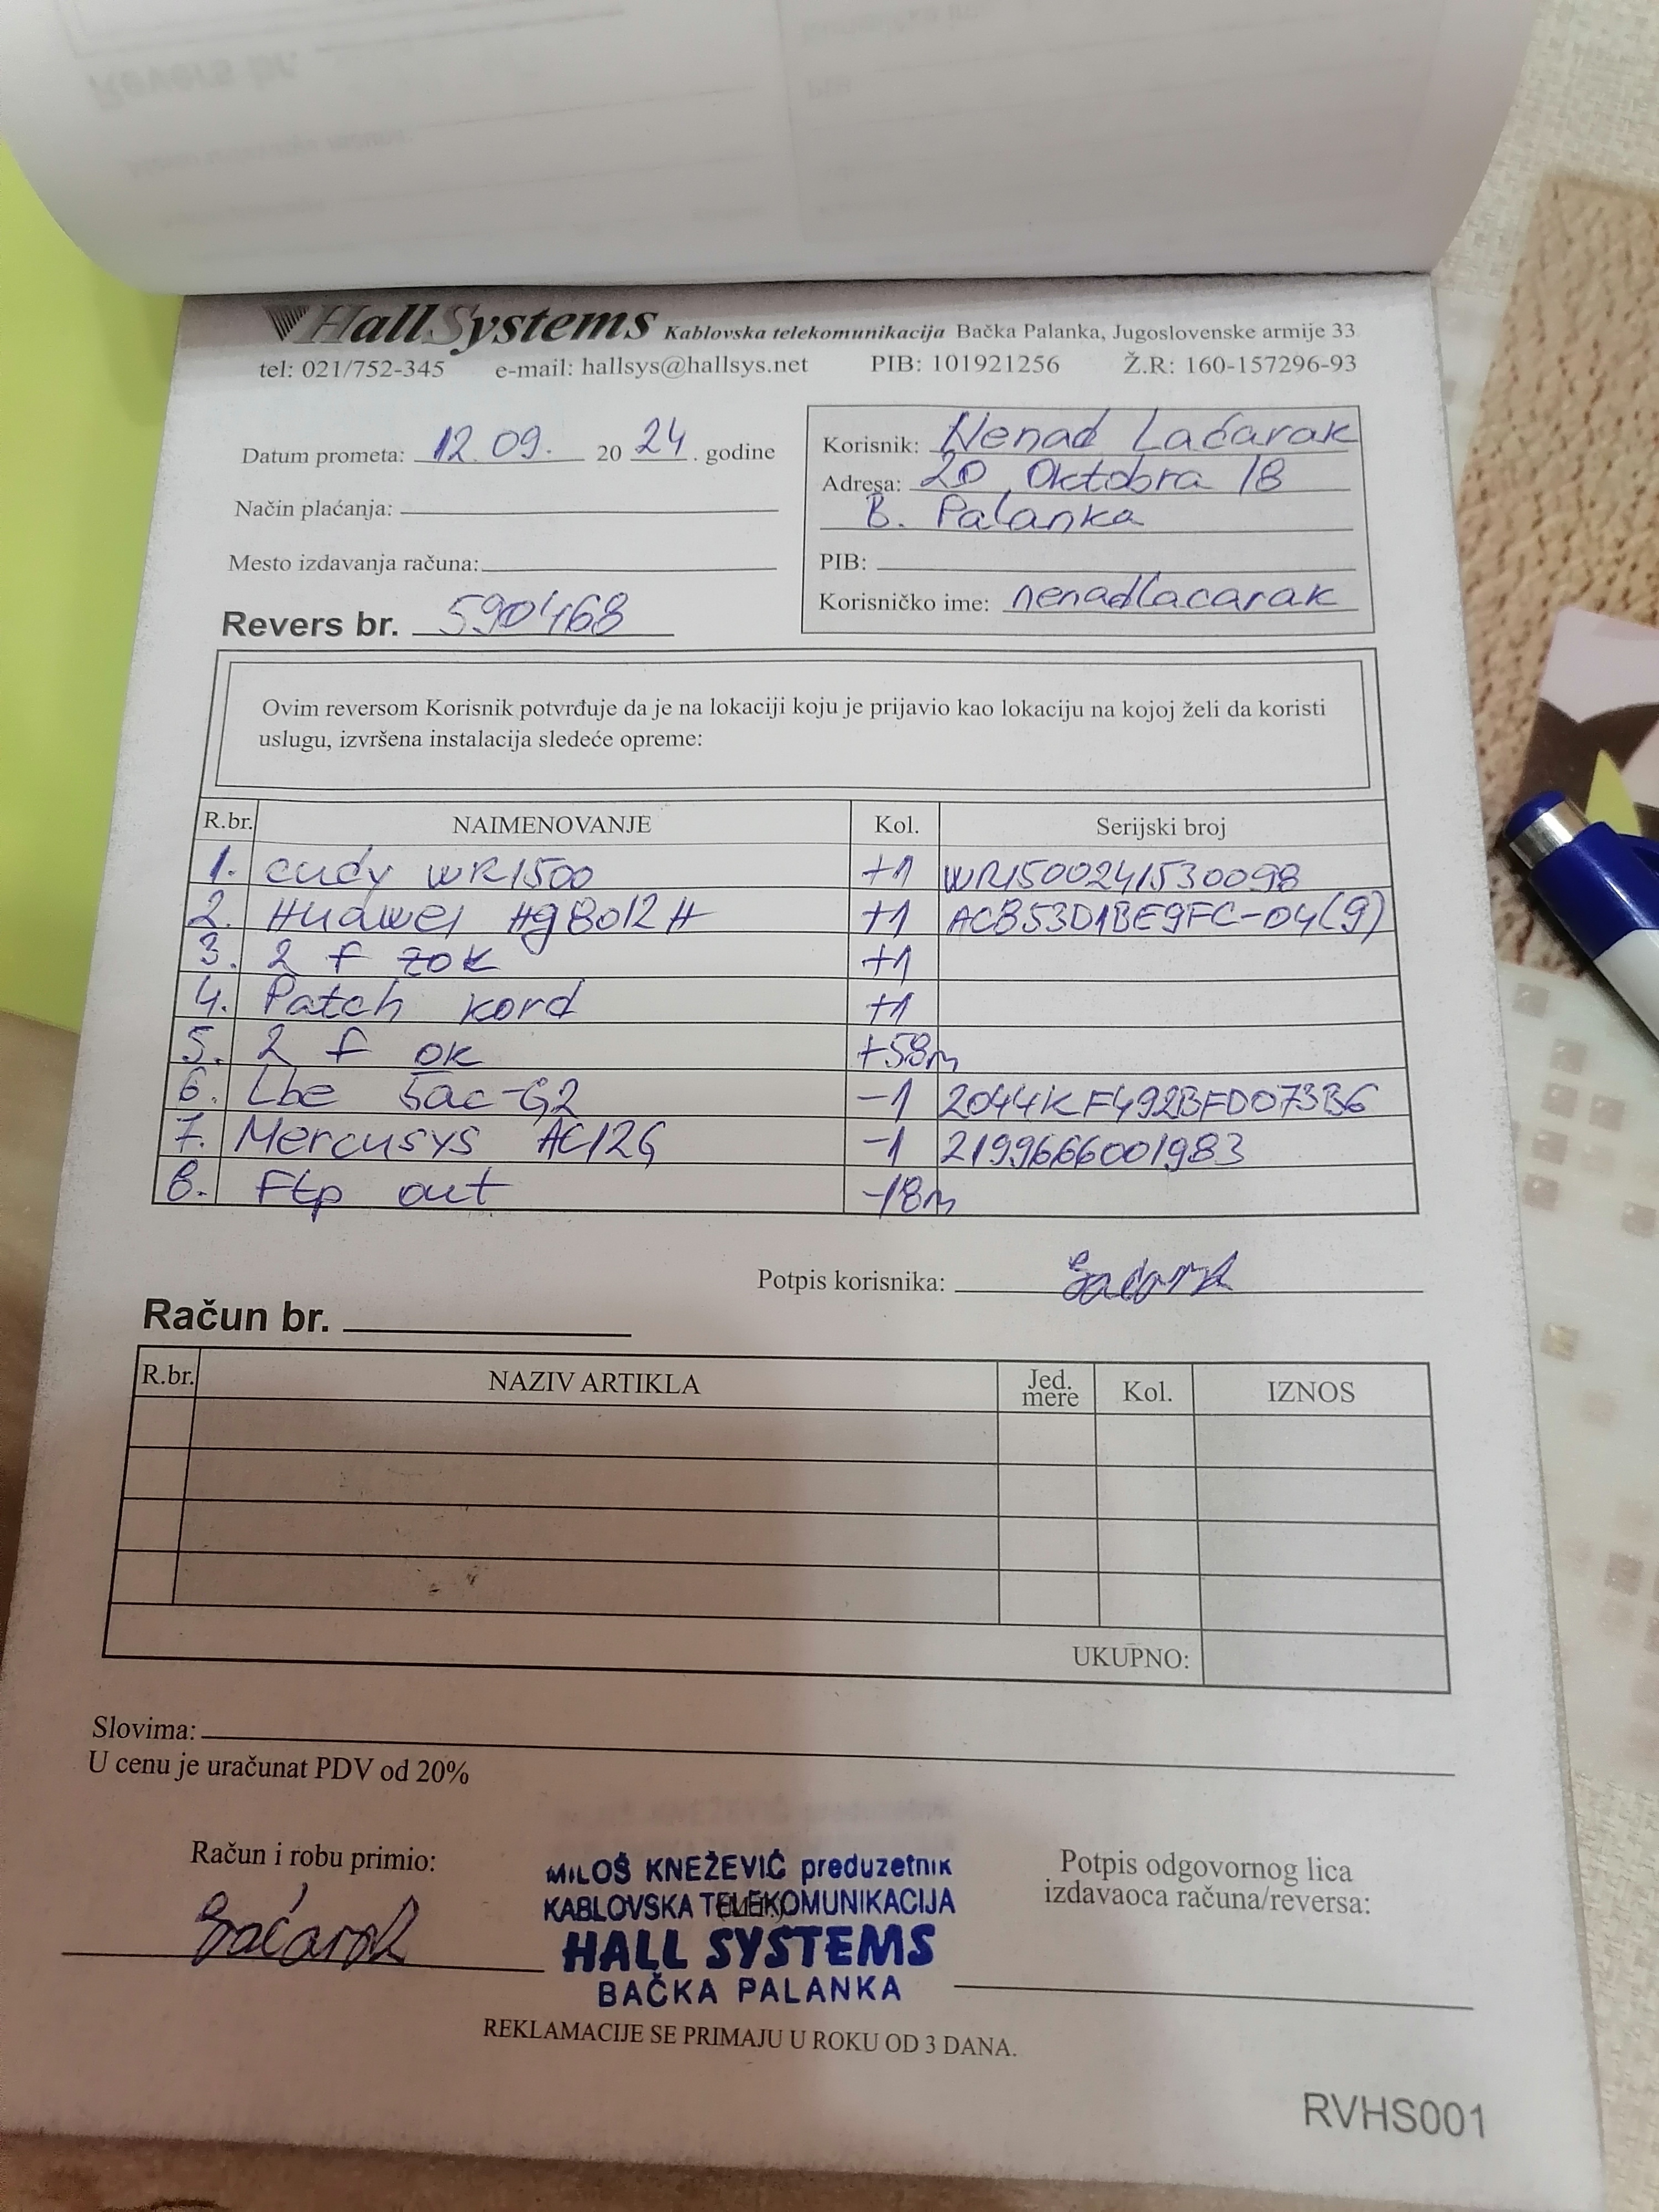 HallSystems Kablovska telekomunikacija Bačka Palanka, Jugoslovenske armije 33
tel: 021/752-345 e-mail: hallsys@hallsys.net PIB: 101921256 Ž.R: 160-157296-93
Datum prometa: 12.09. 20 24 . godine
Način plaćanja:
Mesto izdavanja računa:
Revers br. 590468
Korisnik: Nenad Laćarak
Adresa: 20 Oktobra 18
B. Palanka
PIB:
Korisničko ime: nenadlacarak
Ovim reversom Korisnik potvrđuje da je na lokaciji koju je prijavio kao lokaciju na kojoj želi da koristi
uslugu, izvršena instalacija sledeće opreme:
R.br. NAIMENOVANJE Kol. Serijski broj
1. cudy WR1500 +1 WR1500241530098
2. Huawei Hg8012H +1 ACB53D1BE9FC-04(9)
3. 2 f zok +1
4. Patch kord +1
5. 2 f ok +58m
6. Lbe 5ac-G2 -1 2044KF492BFD073B6
7. Mercusys AC12G -1 2199666001983
8. Ftp out -18m
Potpis korisnika: Laćarak
Račun br.
R.br. NAZIV ARTIKLA Jed. mere Kol. IZNOS
UKUPNO:
Slovima:
U cenu je uračunat PDV od 20%
Račun i robu primio:
Laćarak
MILOŠ KNEŽEVIĆ preduzetnik
KABLOVSKA TELEKOMUNIKACIJA
HALL SYSTEMS
BAČKA PALANKA
Potpis odgovornog lica
izdavaoca računa/reversa:
REKLAMACIJE SE PRIMAJU U ROKU OD 3 DANA.
RVHS001